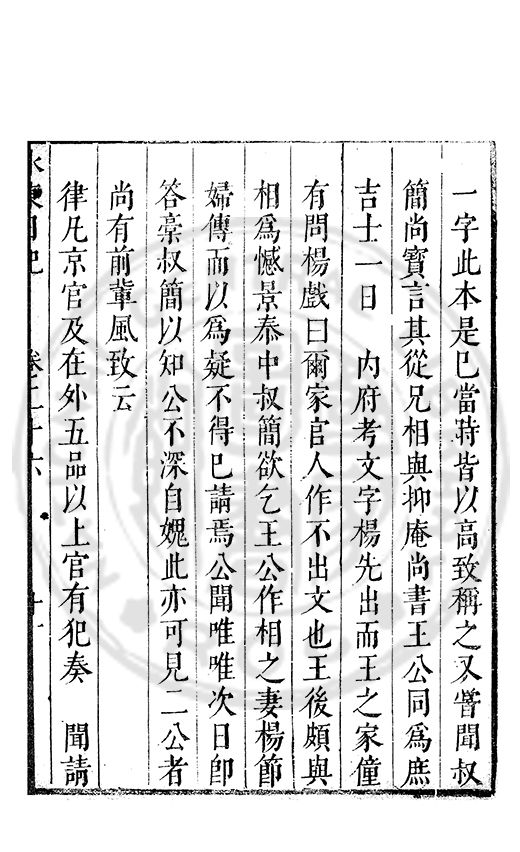 一字此本是巳當時皆以高致稱之又嘗聞叔
簡尚寳言其從兄相與抑庵尚書王公同爲庶
吉士一日　内府考文字楊先出而王之家僮
有問楊戲曰爾家官人作不出文也王後頗與
相爲憾景泰中叔簡欲乞王公作相之妻楊節
婦傳而以爲疑不得巳請焉公聞唯唯次日卽
答藁叔簡以知公不深自媿此亦可見二公者
尚有前輩風致云
律凡京官及在外五品以上官有犯奏　聞請
水東日記　卷二十六　十一